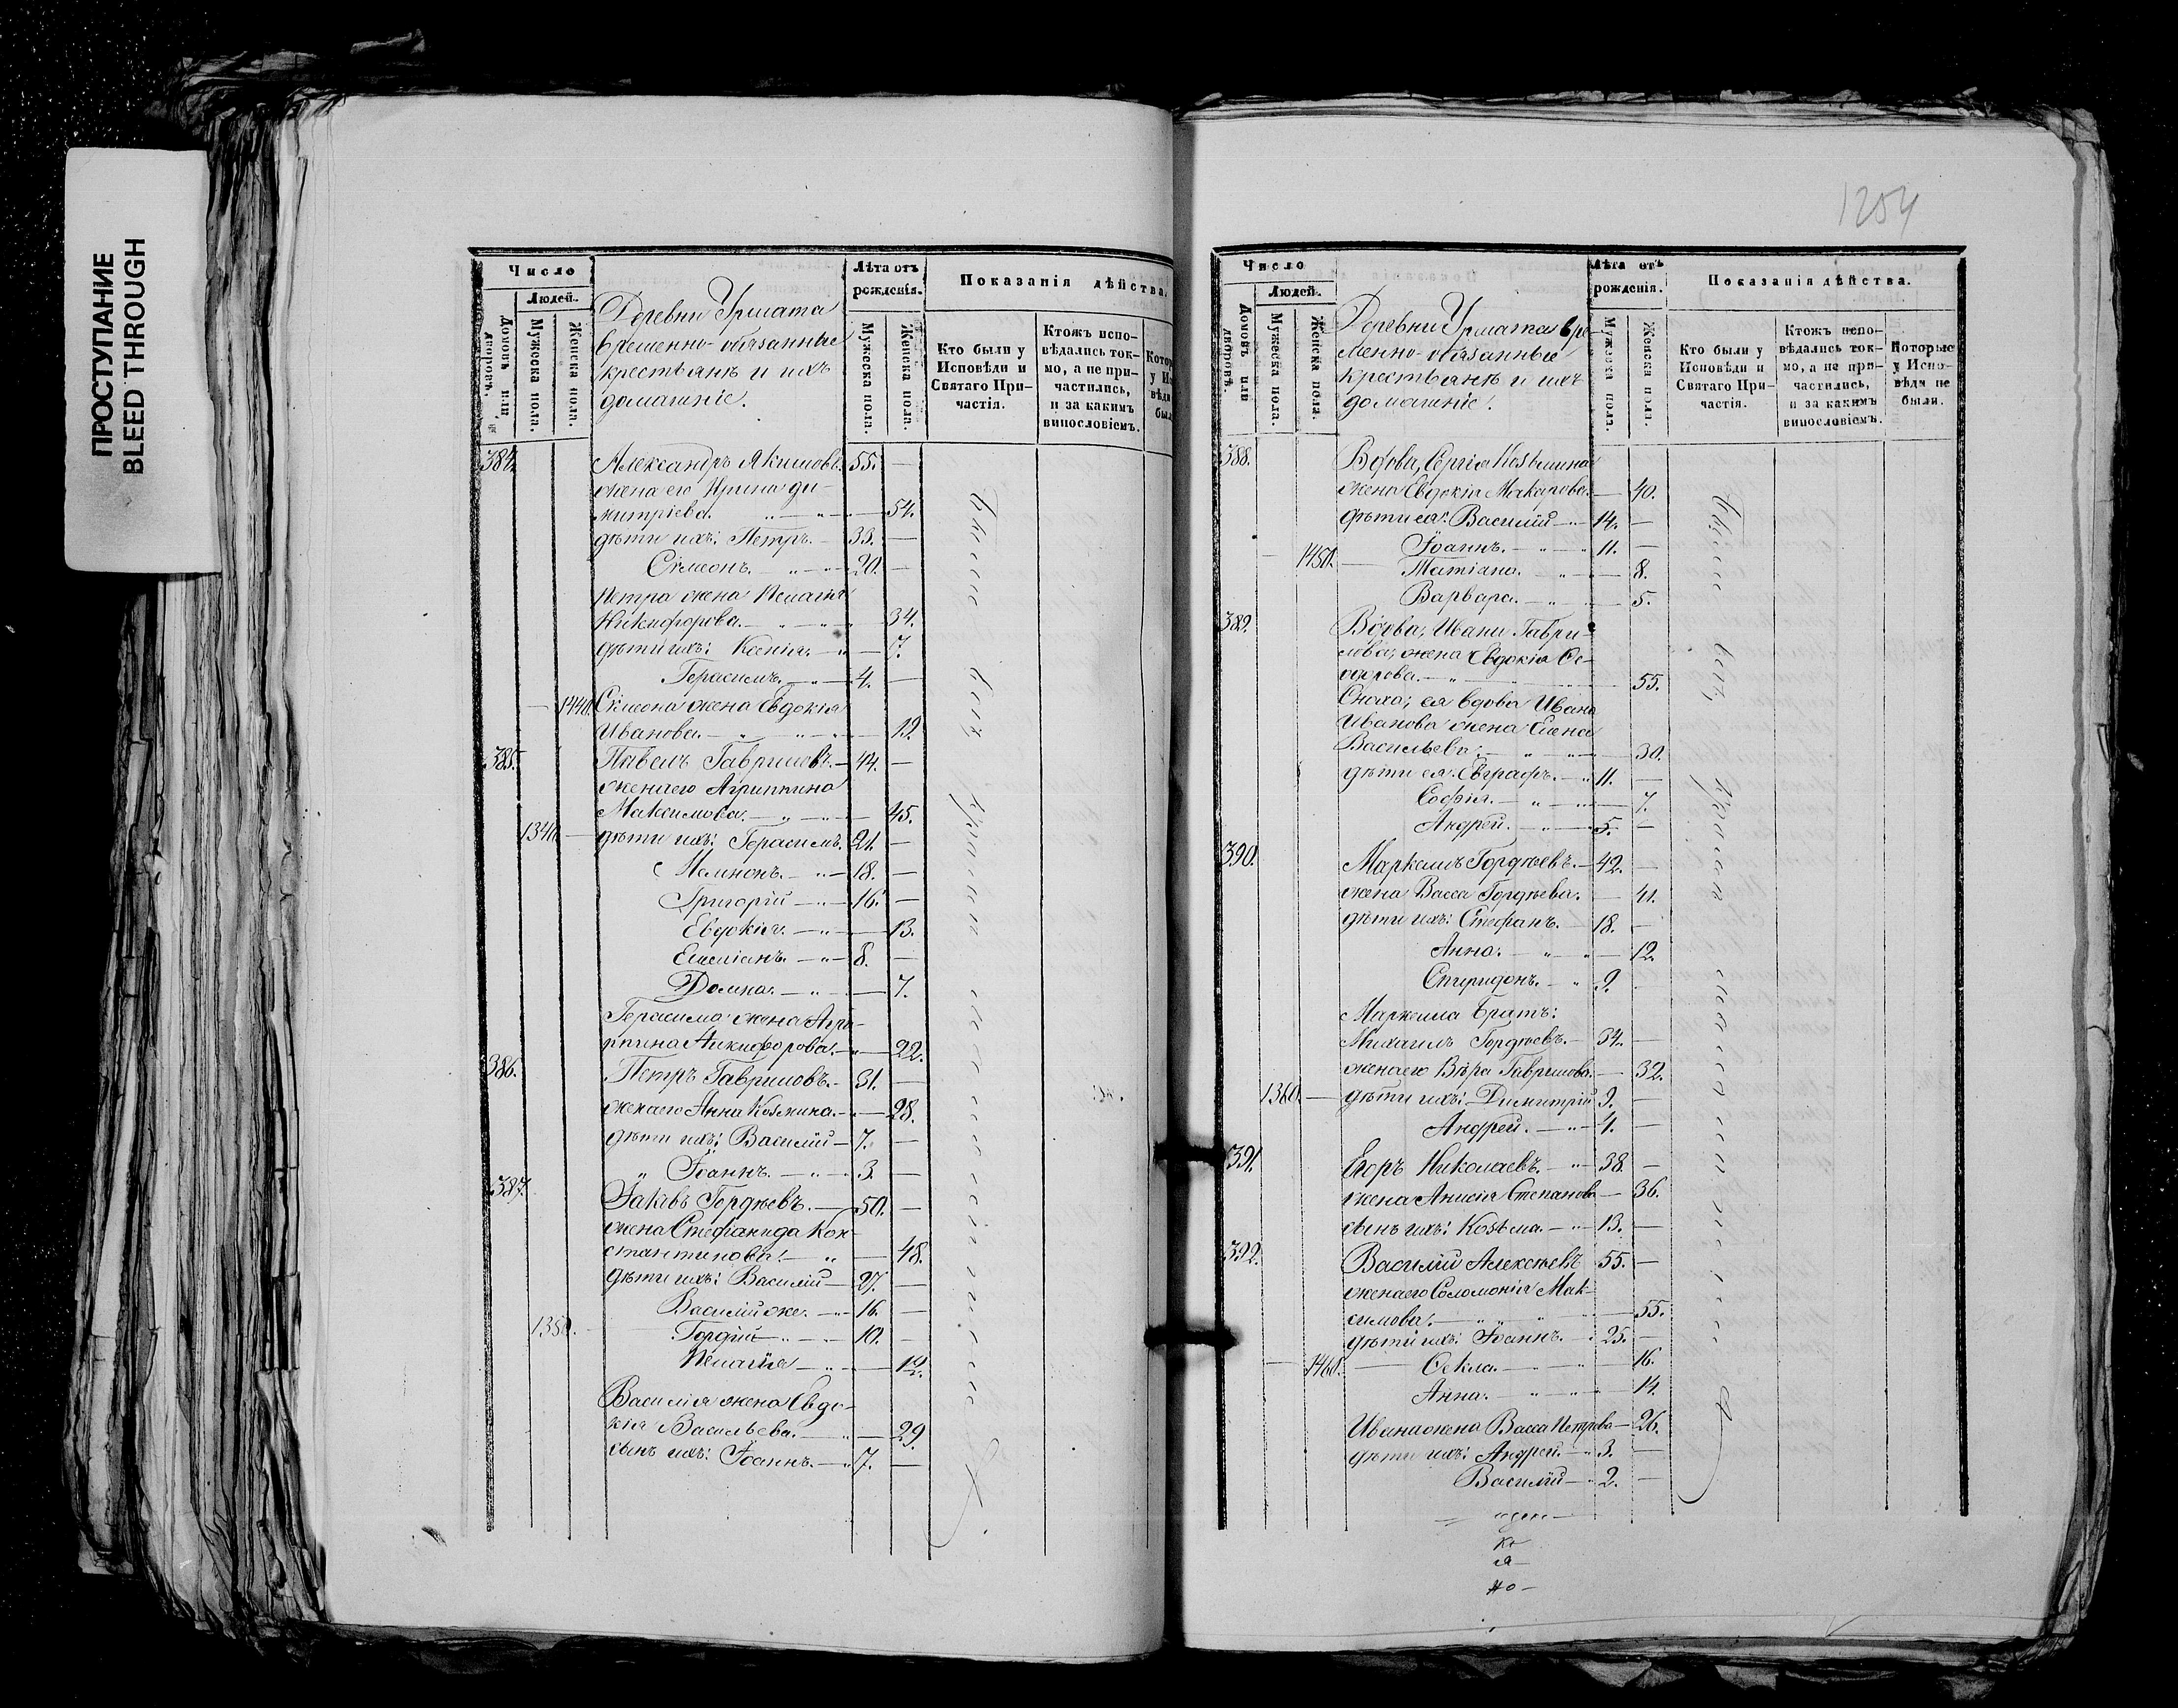 ПРОСТУПАНИЕ
BLEED THROUGH
Число
Людей.
Домовъ или дворовъ.
Мужеска пола.
Женска пола.
Деревни Урмата
временно-обязанные
крестьянъ и ихъ
домашніе.
Лѣта отъ
рожденія.
Мужеска пола.
Женска пола.
Показанія дѣйства.
Кто были у
Исповѣди и
Святаго При-
частія.
Ктожъ испо-
вѣдались ток-
мо, а не при-
частились,
и за какимъ
винословіемъ.
Котор
у Ис
вѣди
был
384. Александръ Якимовъ. 55. —
жена его Ирина Ди-
митріева. — 54.
дѣти ихъ: Петръ. — 33. —
Сімеонъ. — 20. —
Петра жена Пелагія
Никифорова. — 34.
дѣти ихъ: Ксенія. — 7.
Герасимъ. — 4. —
1440. Сімеона жена Евдокія
Иванова. — 19.
385. Павелъ Гавриловъ. — 44. —
жена его Агриппина
Максимова. — 45.
1340. — дѣти ихъ: Герасимъ. 21. —
Мемнонъ. — 18. —
Григорій — 16. —
Евдокія. — 13.
Емеліанъ. — 8. —
Домна. — 7.
Герасима жена Агри-
ппина Никифорова. — 22.
386. Петръ Гавриловъ. — 31. —
жена его Анна Козмина. — 28.
дѣти ихъ: Василій — 7. —
" Іоаннъ. — 3. —
387. Іаковъ Гордѣевъ. — 50. —
жена Стефанида Кон-
стантинова. — 48.
дѣти ихъ: Василій — 27. —
Василій же. — 16. —
1350. Гордѣй — 10. —
Пелагія — 12.
Василія жена Евдо-
кія Васильева. — 29.
сынъ ихъ: Іоаннъ. — 7. —
Были
1254
Число
Людей.
Домовъ или дворовъ.
Мужеска пола.
Женска пола.
Деревни Урмата вре-
менно-обязанные
крестьянъ и ихъ
домашніе.
Лѣта отъ
рожденія.
Мужеска пола.
Женска пола.
Показанія дѣйства.
Кто были у
Исповѣди и
Святаго При-
частія.
Ктожъ испо-
вѣдались ток-
мо, а не при-
частились,
и за какимъ
винословіемъ.
Которые
у Испо-
вѣди не
были.
388. Вдова, Сергія Козьмина
жена Евдокія Макарова. — 40.
дѣти ея: Василій — 14. —
Іоаннъ. — 11. —
1450. — Татіана. — 8.
Варвара. — 5.
389. Вдова, Ивана Гаври-
лова, жена Евдокія Ѳе-
одорова. — 55.
Сноха, ея вдова Ивана
Иванова жена Елена
Васильева. — 30.
дѣти ея: Евграфъ. — 11. —
Софія. — 7.
Андрей. — 5. —
390. Маркеллъ Гордѣевъ. — 42. —
жена Васса Гордѣева. — 41.
дѣти ихъ: Стефанъ. — 18. —
Анна. — 12.
Спиридонъ. — 9. —
Маркелла братъ:
Михаилъ Гордѣевъ. — 34. —
жена его Вѣра Гаврилова. — 32.
1360. — дѣти ихъ: Димитрій 9. —
Андрей. — 4. —
391. Егоръ Николаевъ. — 38. —
жена Анисія Степанова — 36.
сынъ ихъ: Козьма. — 13. —
392. Василій Алексѣевъ 55. —
жена его Соломонія Мак-
симова. — 55.
дѣти ихъ: Іоаннъ. — 25. —
1460. — Ѳекла. — 16.
Анна. — 14.
Ивана жена Васса Петрова — 26.
дѣти ихъ: Андрей. — 3. —
Василій — 2. —
Были